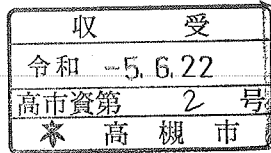 収 受
令和 -5. 6. 22
高市資第 2 号
* 高槻市